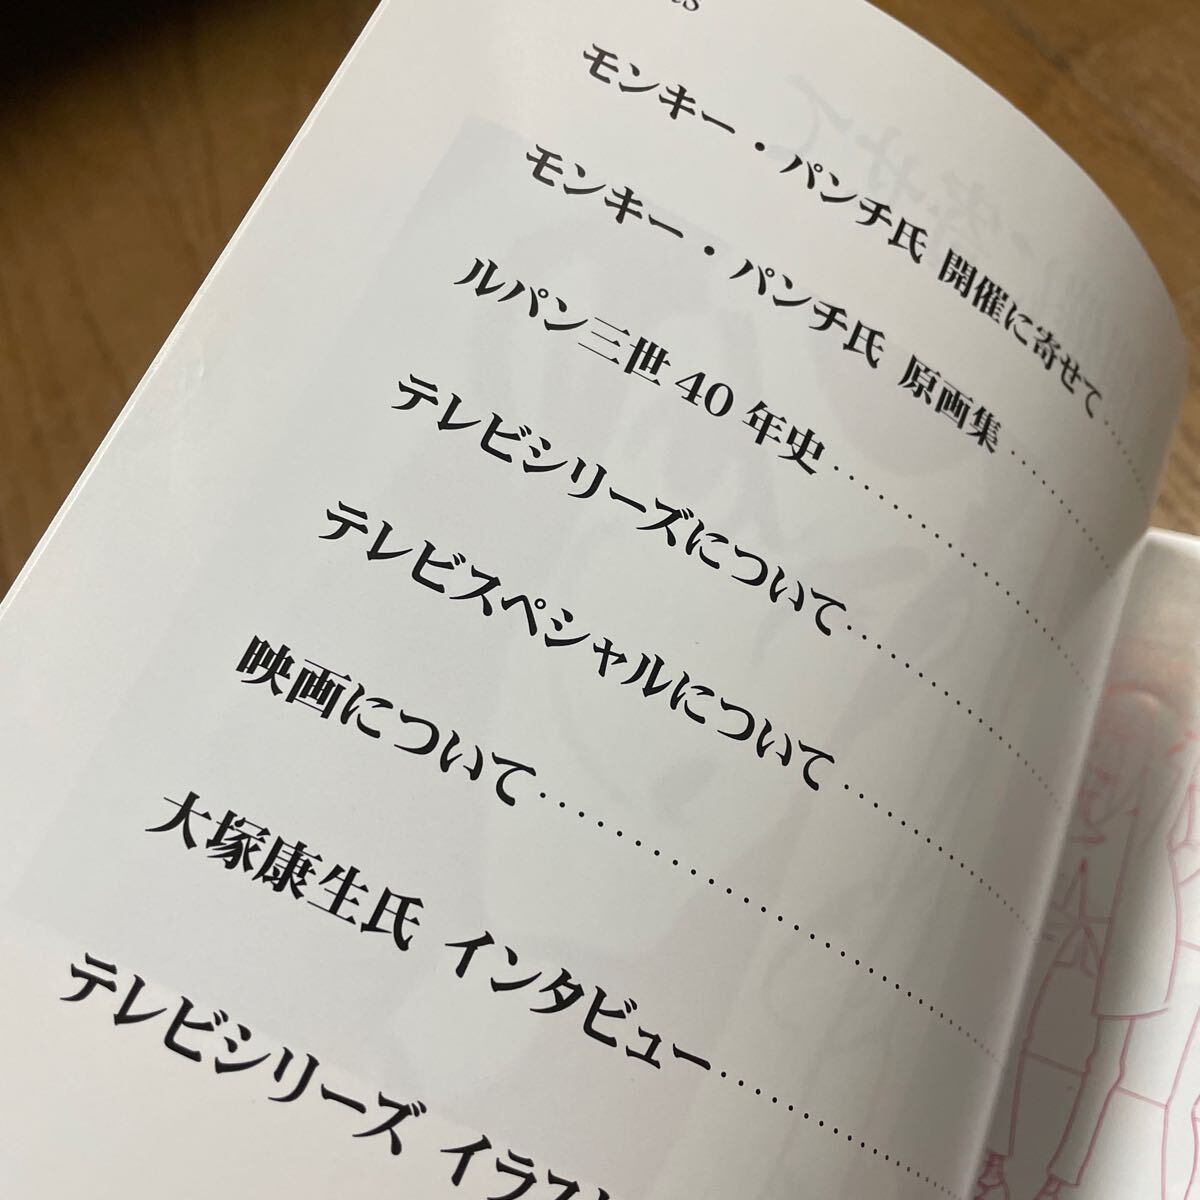 モンキー・パンチ氏 開催に寄せて
モンキー・パンチ氏 原画集
ルパン三世40年史
テレビシリーズについて
テレビスペシャルについて
映画について
大塚康生氏 インタビュー
テレビシリーズ イラスト